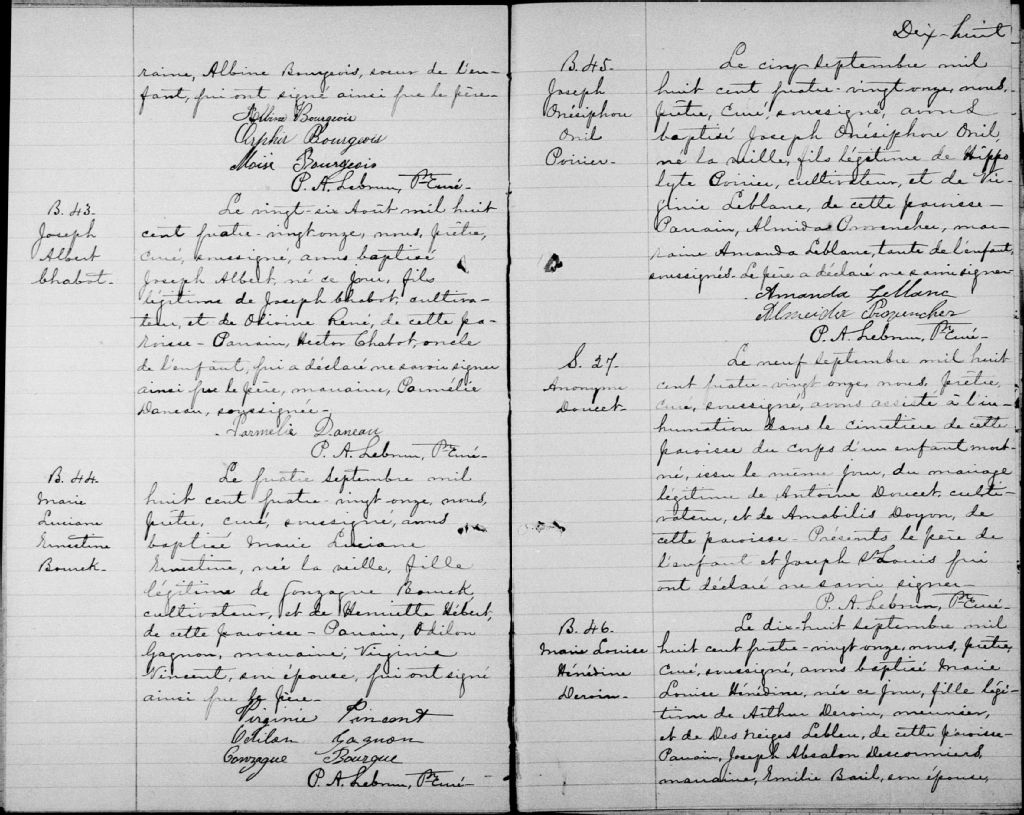 raine, Albina Bourgeois, soeur de l'en-
fant, qui ont signé ainsi que le père-
Albina Bourgeois
Orpha Bourgeois
Moise Bourgeois
P. A. Lebrun, Ptre Curé-
B. 43.
Joseph
Albert
Chabot.
Le vingt-six Août mil huit
cent quatre-vingt onze, nous, prêtre,
curé, soussigné, avons baptisé
Joseph Albert, né ce jour, fils
légitime de Joseph Chabot, cultiva-
teur, et de Olivine René, de cette pa-
roisse- Parrain, Hector Chabot, oncle
de l'enfant, qui a déclaré ne savoir signer
ainsi que le père, marraine, Parmélie
Daneau, soussignée-
Parmelie Daneau
P. A. Lebrun, Ptre Curé-
B. 44.
Marie
Luciane
Ernestine
Bourck-
Le quatre septembre mil
huit cent quatre-vingt onze, nous,
prêtre, curé, soussigné, avons
baptisé Marie Luciane
Ernestine, née la veille, fille
légitime de Gonzague Bourck,
cultivateur, et de Henriette Hébert,
de cette paroisse- Parrain, Odilon
Gagnon, marraine, Virginie
Vincent, son épouse, qui ont signé
ainsi que le père-
Virginie Vincent
Odilon Gagnon
Gonzague Bourque
P. A. Lebrun, Ptre Curé-
Dix-huit
B. 45.
Joseph
Onésiphore
Onil
Poirier-
Le cinq septembre mil
huit cent quatre-vingt onze, nous,
prêtre, curé, soussigné, avons
baptisé Joseph Onésiphore Onil,
né la veille, fils légitime de Hippo
lyte Poirier, cultivateur, et de Vir
ginie Leblanc, de cette paroisse-
Parrain, Almida Provencher, mar-
raine Amanda Leblanc, tante de l'enfant,
soussignés. Le père a déclaré ne savoir signer
Amanda Leblanc
Almeida Provencher
P. A. Lebrun, Ptre Curé-
S. 27
Anonyme
Doucet-
Le neuf septembre mil huit
cent quatre-vingt onze, nous, prêtre,
curé, soussigné, avons assisté à l'in-
humation dans le cimetière de cette
paroisse du corps d'un enfant mort-
né, issu le même jour, du mariage
légitime de Antoine Doucet, culti-
vateur, et de Amabilis Doyon, de
cette paroisse- Présents le père de
l'enfant et Joseph St Louis qui
ont déclaré ne savoir signer-
P. A. Lebrun, Ptre Curé-
B. 46.
Marie Louise
Hénédine
Deroin-
Le dix-huit septembre mil
huit cent quatre-vingt onze, nous, prêtre,
curé, soussigné, avons baptisé Marie
Louise Hénédine, née ce jour, fille légi-
time de Arthur Deroin, meunier,
et de Des Neiges Lebleu, de cette paroisse-
Parrain, Joseph Absalon Descormiers,
marraine, Emilie Baril, son épouse,